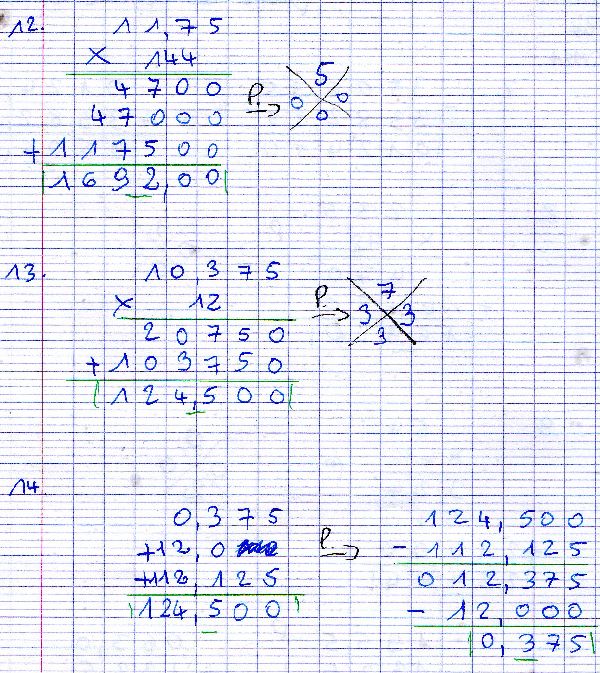 12. 11,75
× 144
4700
47000
+ 117500
1692,00
P → 5 0 0 0
13. 10,375
× 12
20750
+ 103750
124,500
P → 7 3 3 3
14.
0,375
+12,0
+112,125
124,500
P →
124,500
- 112,125
012,375
- 12,000
0,375